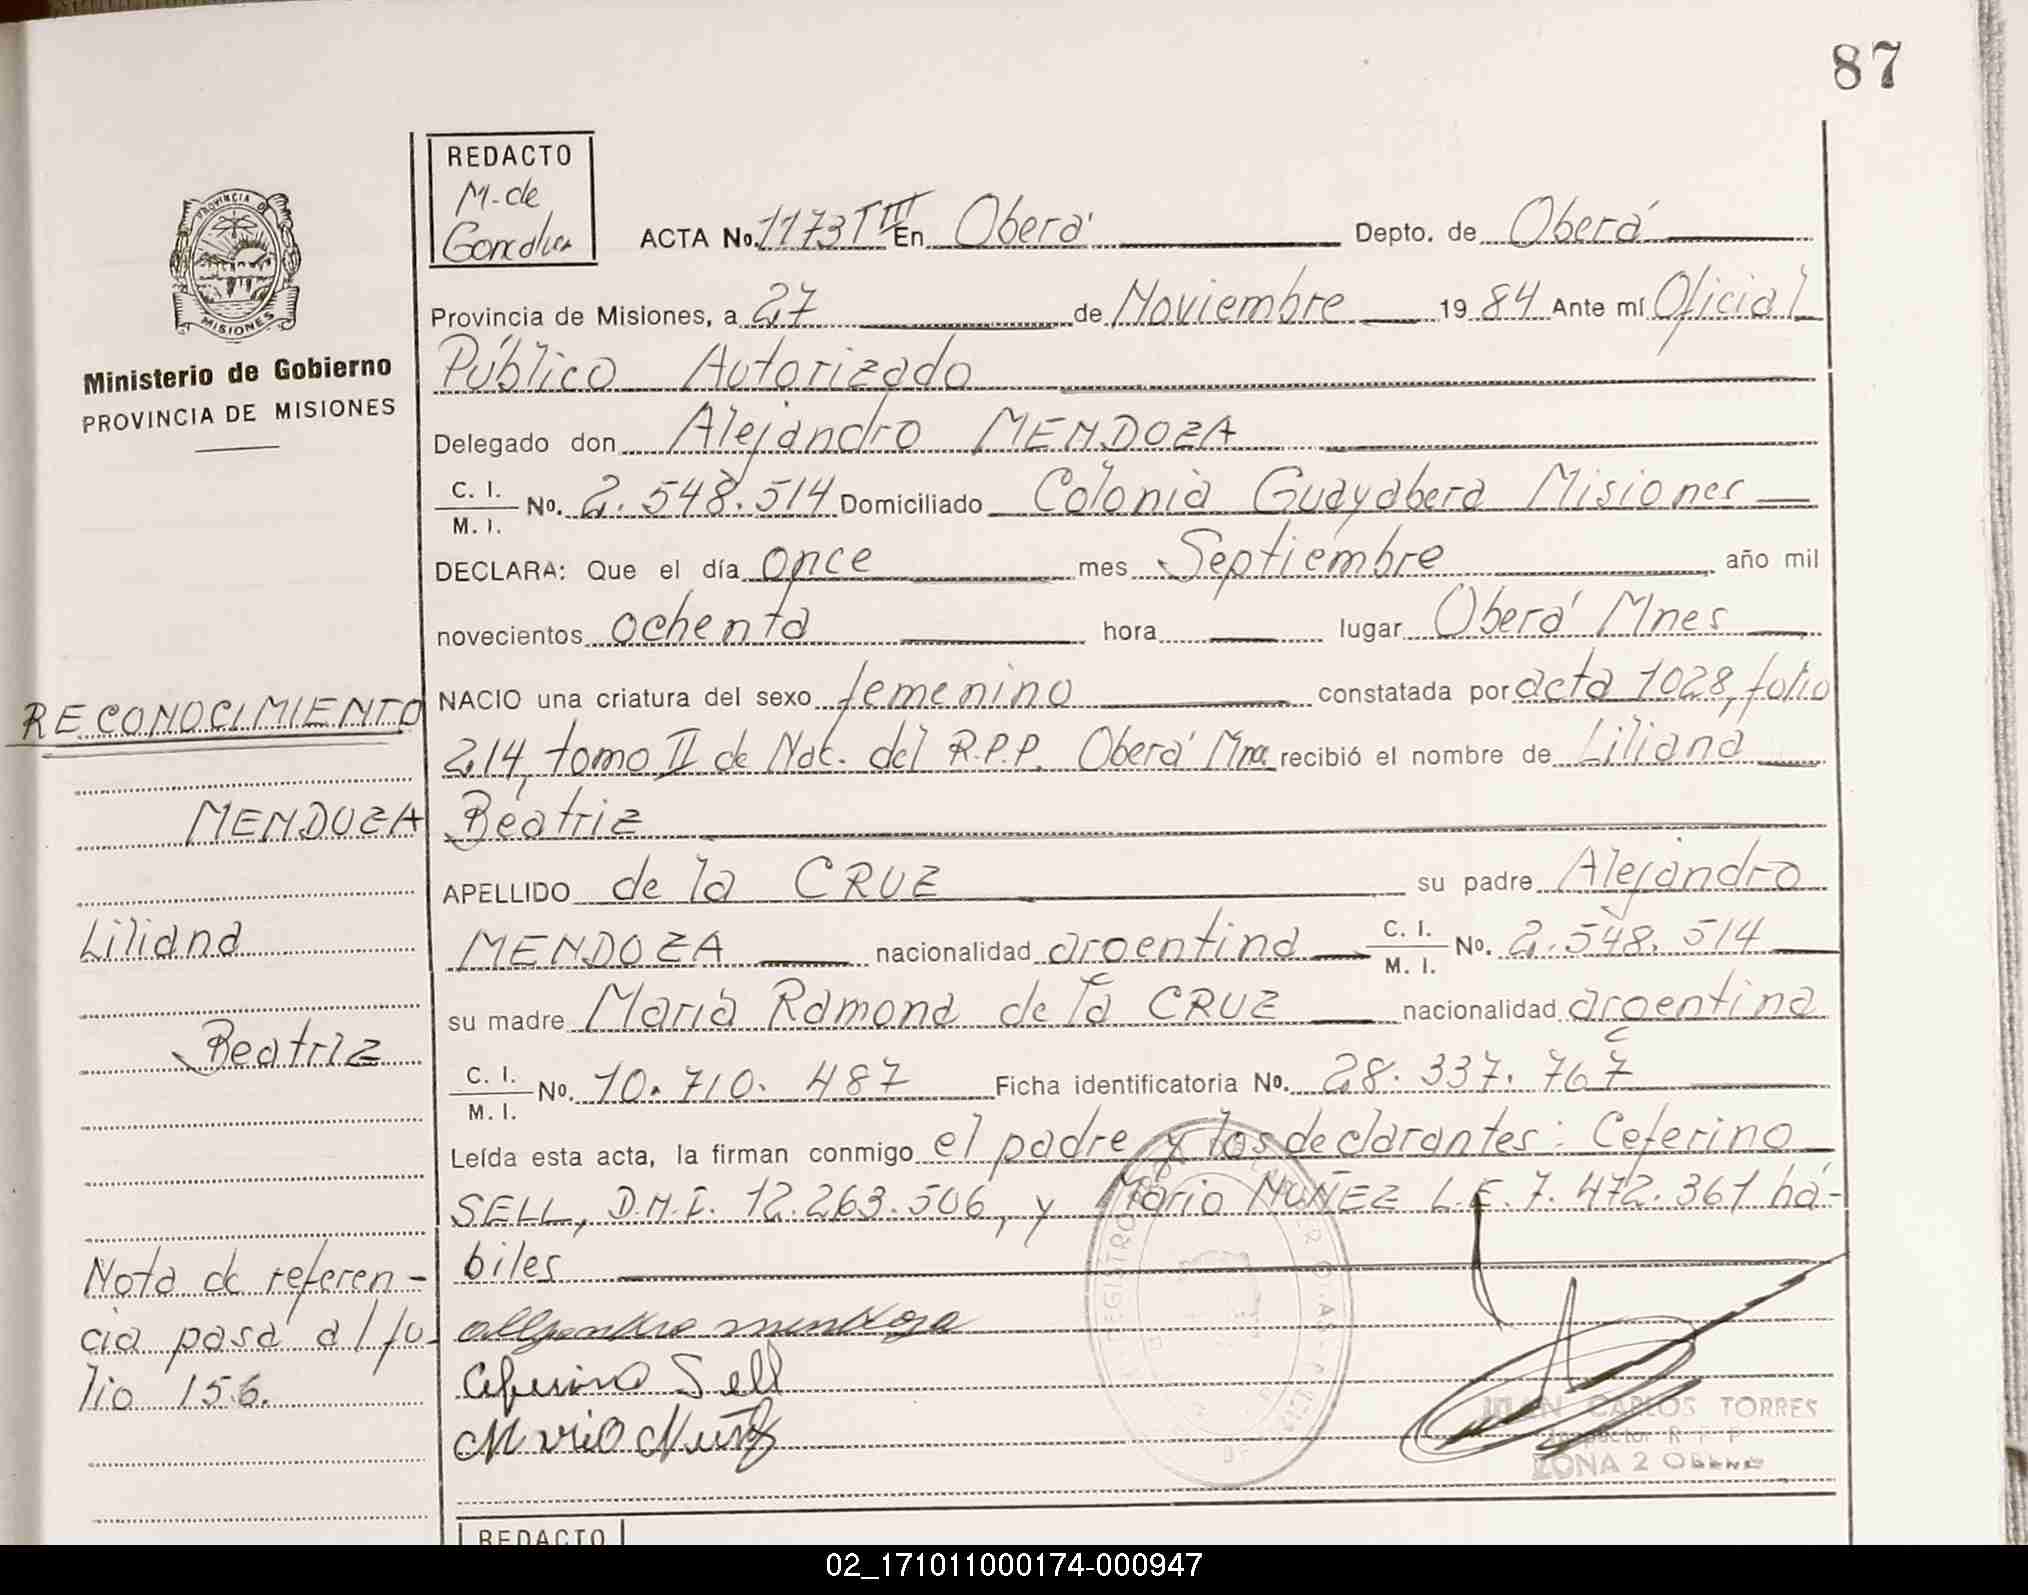 87
REDACTO
M. de
Gonzalez
ACTA No. 1173 T III En Oberá Depto. de Oberá
PROVINCIA DE
MISIONES
Provincia de Misiones, a 27 de Noviembre 1984 Ante mí Oficial
Ministerio de Gobierno
PROVINCIA DE MISIONES
Público Autorizado
Delegado don Alejandro MENDOZA
C. I.
M. I. No. 2.548.514 Domiciliado Colonia Guayabera Misiones
DECLARA: Que el día once mes Septiembre año mil
novecientos ochenta hora lugar Oberá Mnes
RECONOCIMIENTO
NACIO una criatura del sexo femenino constatada por acta 1028, folio
214, tomo II de Nac. del R.P.P. Oberá Mnes recibió el nombre de Liliana
MENDOZA
Beatriz
APELLIDO de la CRUZ su padre Alejandro
Liliana
MENDOZA nacionalidad argentina C. I.
M. I. No. 2.548.514
su madre María Ramona de la CRUZ nacionalidad argentina
Beatriz
C. I.
M. I. No. 10.710.487 Ficha identificatoria No. 28.337.767
Leída esta acta, la firman conmigo el padre y los declarantes: Ceferino
SELL, D.N.I. 12.263.506, y Mario NUÑEZ L.E. 7.472.361 há-
biles
Nota de referen-
cia pasa al fo-
lio 156.
Alejandro Mendoza
Ceferino Sell
Mario Nuñez
JUAN CARLOS TORRES
Inspector R P P
ZONA 2 OBERA
REDACTO
02_171011000174-000947